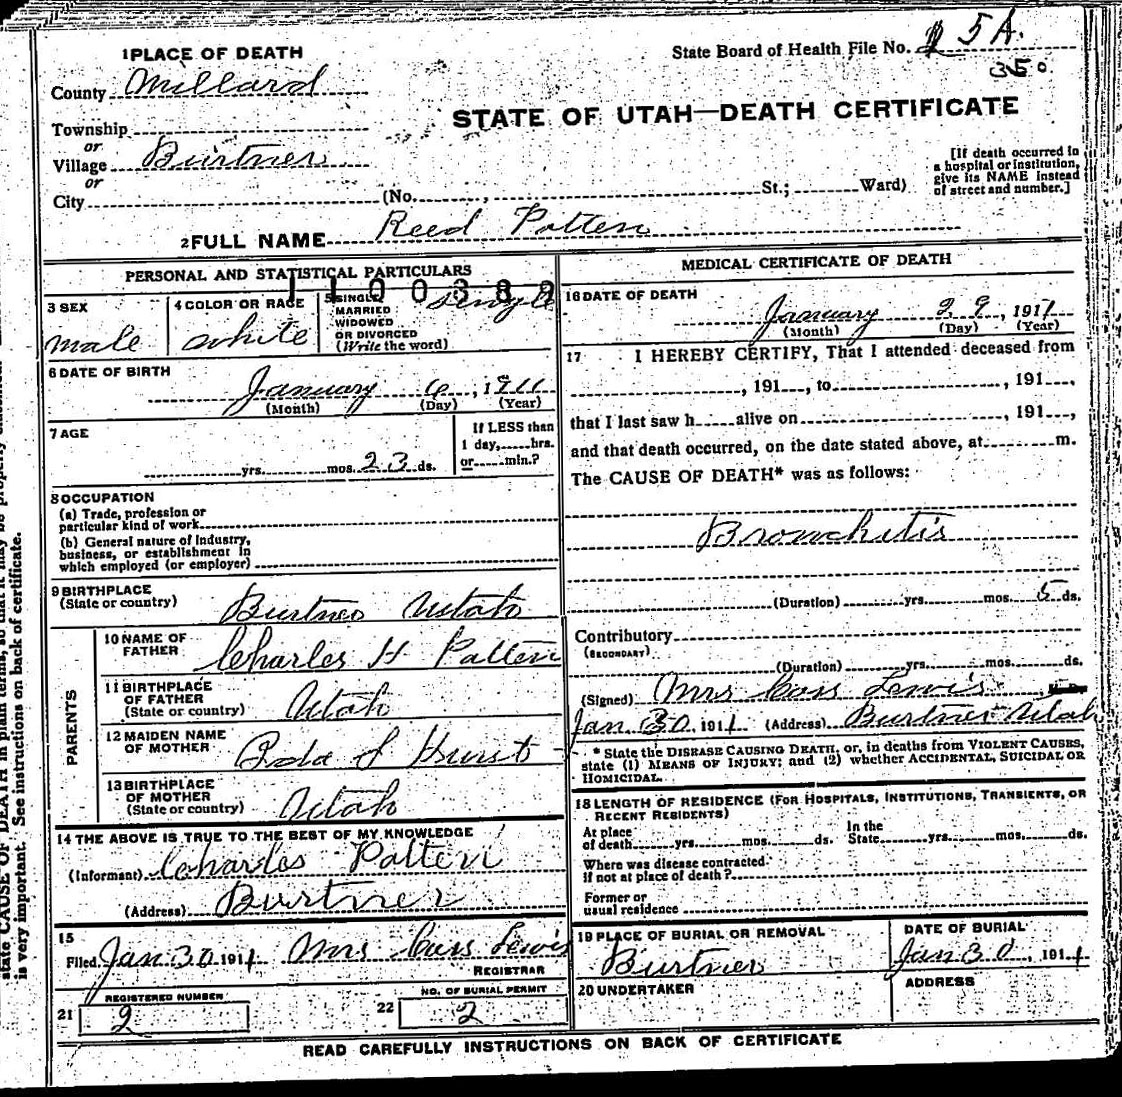 1 PLACE OF DEATH
State Board of Health File No. 5 A.
350
County Millard
STATE OF UTAH—DEATH CERTIFICATE
Township
or
Village Burtner
or
City (No. , St.; Ward)
[If death occurred in
a hospital or institution,
give its NAME instead
of street and number.]
2 FULL NAME Reed Patten
PERSONAL AND STATISTICAL PARTICULARS
3 SEX
male
4 COLOR OR RACE
white
5 SINGLE,
MARRIED
WIDOWED
OR DIVORCED
(Write the word)
single
6 DATE OF BIRTH
January 6, 1911
(Month) (Day) (Year)
7 AGE
yrs. mos. 23 ds.
If LESS than
1 day, hrs.
or min.?
8 OCCUPATION
(a) Trade, profession or
particular kind of work
(b) General nature of industry,
business, or establishment in
which employed (or employer)
9 BIRTHPLACE
(State or country) Burtner Utah
PARENTS
10 NAME OF
FATHER Charles H Patten
11 BIRTHPLACE
OF FATHER
(State or country) Utah
12 MAIDEN NAME
OF MOTHER Hurst
13 BIRTHPLACE
OF MOTHER
(State or country) Utah
14 THE ABOVE IS TRUE TO THE BEST OF MY KNOWLEDGE
(Informant) Charles Patten
(Address) Burtner
15
Filed Jan 30 1911 Mrs Cass Lewis
REGISTRAR
REGISTERED NUMBER
21 2
NO. OF BURIAL PERMIT
22 2
MEDICAL CERTIFICATE OF DEATH
16 DATE OF DEATH
January 29, 1911
(Month) (Day) (Year)
17 I HEREBY CERTIFY, That I attended deceased from
, 191 , to , 191 ,
that I last saw h alive on , 191 ,
and that death occurred, on the date stated above, at m.
The CAUSE OF DEATH* was as follows:
Bronchitis
(Duration) yrs. mos. 5 ds.
Contributory
(SECONDARY)
(Duration) yrs. mos. ds.
(Signed) Mrs Cass Lewis
Jan 30 1911 (Address) Burtner Utah
* State the DISEASE CAUSING DEATH, or, in deaths from VIOLENT CAUSES,
state (1) MEANS OF INJURY; and (2) whether ACCIDENTAL, SUICIDAL OR
HOMICIDAL.
18 LENGTH OF RESIDENCE (FOR HOSPITALS, INSTITUTIONS, TRANSIENTS, OR
RECENT RESIDENTS)
At place
of death yrs. mos. ds.
In the
State yrs. mos. ds.
Where was disease contracted
if not at place of death?
Former or
usual residence
19 PLACE OF BURIAL OR REMOVAL
Burtner
DATE OF BURIAL
Jan 30, 1911
20 UNDERTAKER
ADDRESS
READ CAREFULLY INSTRUCTIONS ON BACK OF CERTIFICATE
state CAUSE OF DEATH in plain terms, so that it may be properly
is very important. See instructions on back of certificate.